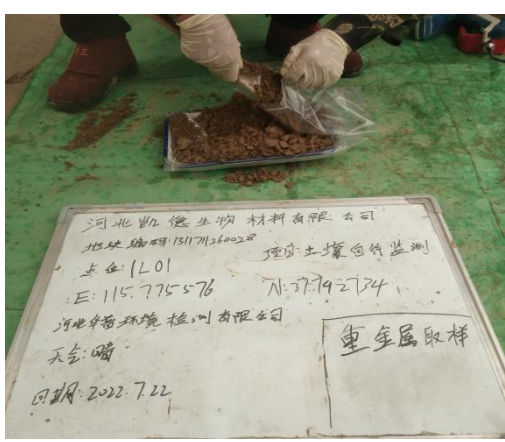 河北凯德生物材料有限公司
地块编码:1311711260028
项目:土壤自行监测
点位:1L01
E:115.775576
N:37.792734
河北华清环境检测有限公司
天气:晴
重金属取样
日期:2022.7.22